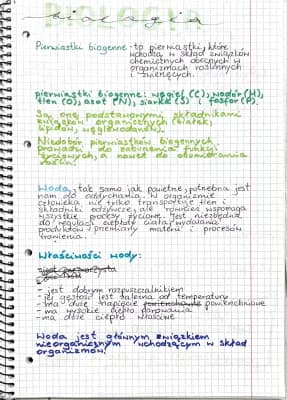 BIOLOGIA
biologia
Pierwiastki biogenne - to pierwiastki, które
wchodzą w skład związków
chemicznych obecnych w
organizmach roślinnych
i zwierzęcych.
pierwiastki biogenne: węgiel (C), wodór (H),
tlen (O), azot (N), siarka (S) i fosfor (P).
Są one podstawowymi składnikami
związków organicznych (białek,
lipidów, węglowodanów).
Niedobór pierwiastków biogennych
prowadzi do zaburzenia funkcji
życiowych, a nawet do obumierania
roślin.
Woda, tak samo jak powietrze, potrzebna jest
nam do oddychania. W organizmie
człowieka nie tylko transportuje tlen i
składniki odżywcze, ale również wspomaga
wszystkie procesy życiowe. Jest niezbędna
do regulacji ciepłoty ciała, wydalania
produktów przemiany materii i procesów
trawienia.
Właściwości wody:
- jest dobrym rozpuszczalnikiem
- jej gęstość jest zależna od temperatury
- ma duże napięcie powierzchniowe
- ma wysokie ciepło parowania
- ma duże ciepło właściwe
Woda jest głównym związkiem
nieorganicznym wchodzącym w skład
organizmów!